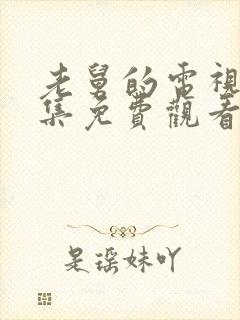 老舅的電視
集免費觀看
是琛妹吖